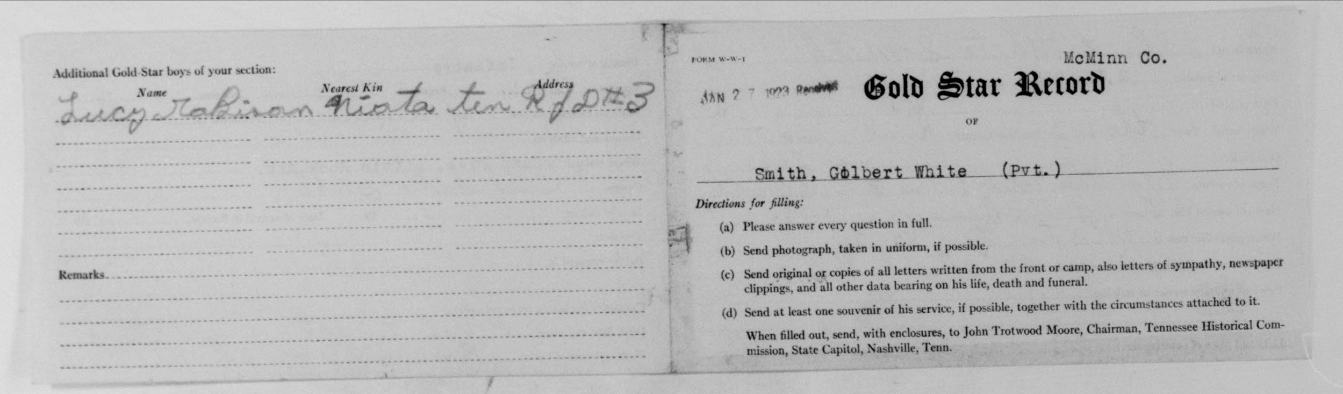 Additional Gold-Star boys of your section:
Name Nearest Kin Address
Lucy Robison Niota ten R f D #3
Remarks
FORM W-W-1
McMinn Co.
JAN 27 1923 Received
Gold Star Record
OF
Smith, Golbert White (Pvt.)
Directions for filling:
(a) Please answer every question in full.
(b) Send photograph, taken in uniform, if possible.
(c) Send original or copies of all letters written from the front or camp, also letters of sympathy, newspaper
clippings, and all other data bearing on his life, death and funeral.
(d) Send at least one souvenir of his service, if possible, together with the circumstances attached to it.
When filled out, send, with enclosures, to John Trotwood Moore, Chairman, Tennessee Historical Com-
mission, State Capitol, Nashville, Tenn.